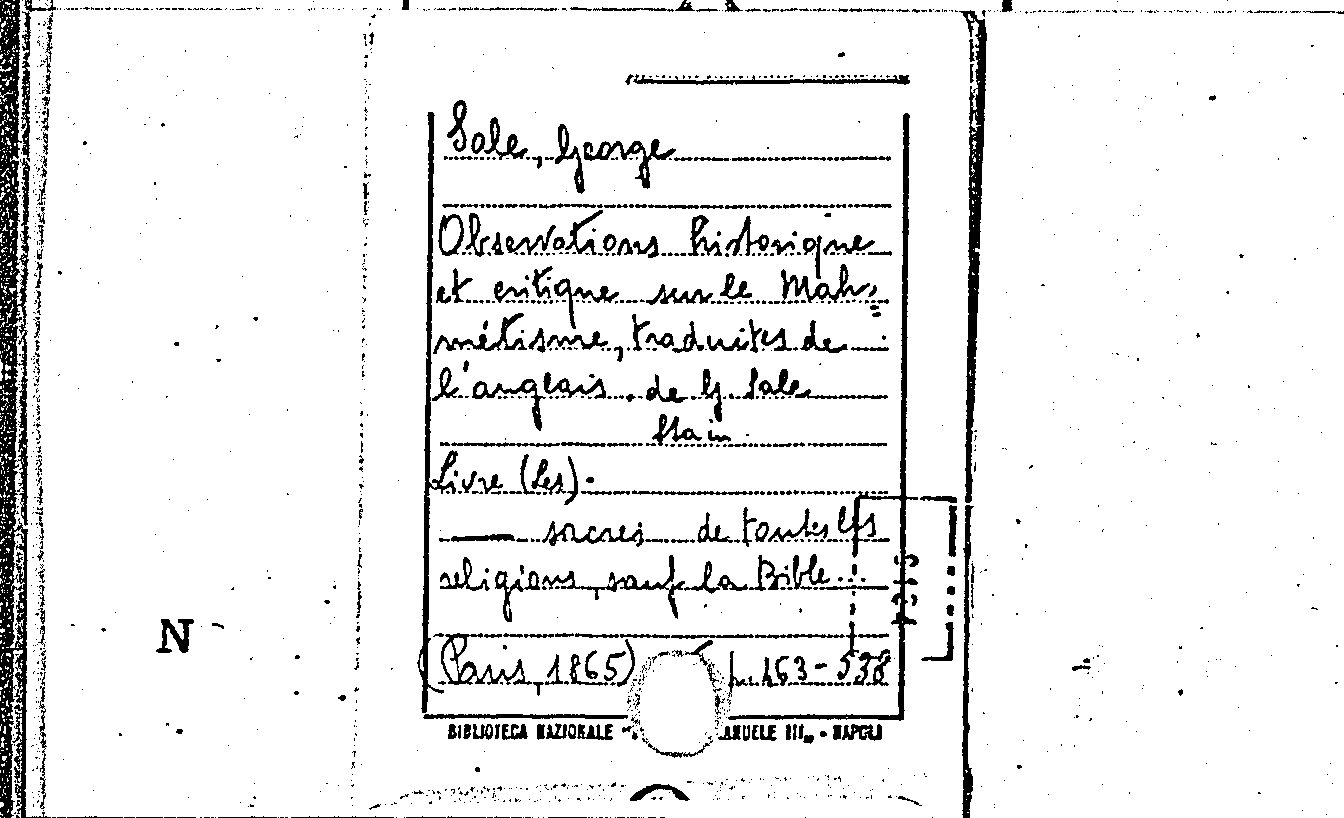 Sale, George
Observations historique
et critique sur le Mah
métisme, traduites de
l'anglais. de G. Sale
Livre (Les).
— sacres de toutes les
religions, sauf la Bible...
(Paris, 1865) p. 463-538
N
BIBLIOTECA NAZIONALE ANUELE III - NAPOLI